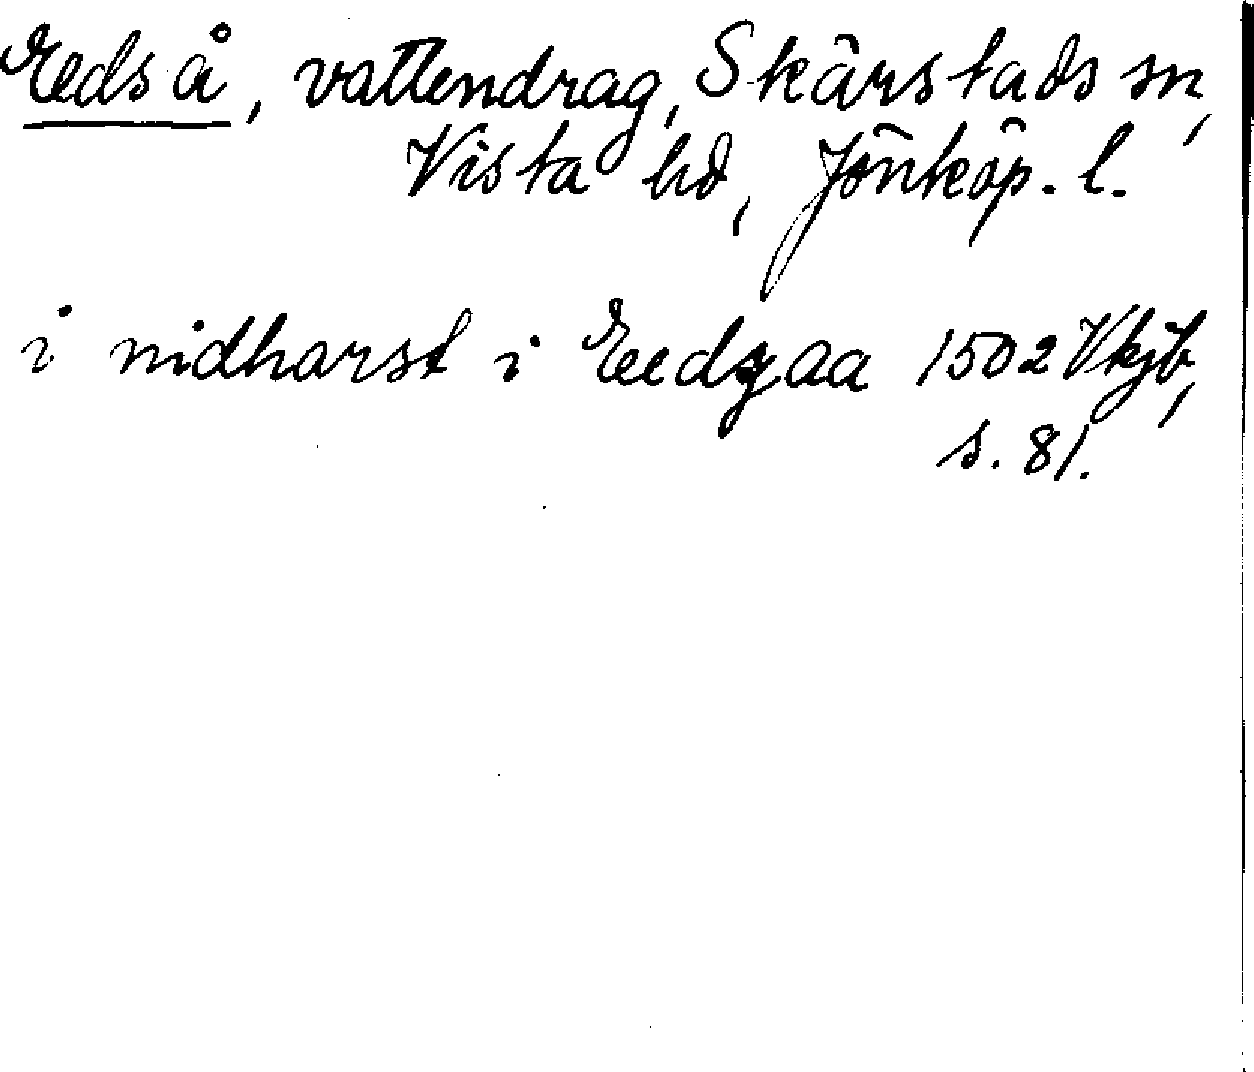 Edså, vattendrag, Skärstads sn,
Vista hd, Jönköp. l.
i nidharst i Eedzaa 1502 Vkjb,
s. 81.